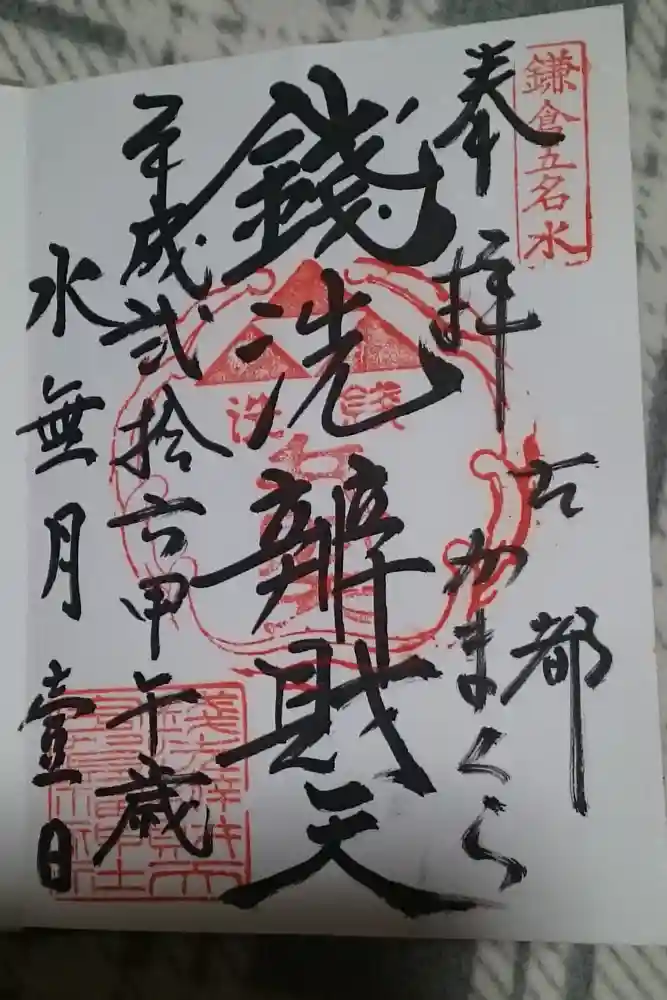 鎌倉五名水
奉拝
古都
かまくら
錢洗辨財天
銭洗
平成弐拾六甲午歳
水無月壹日